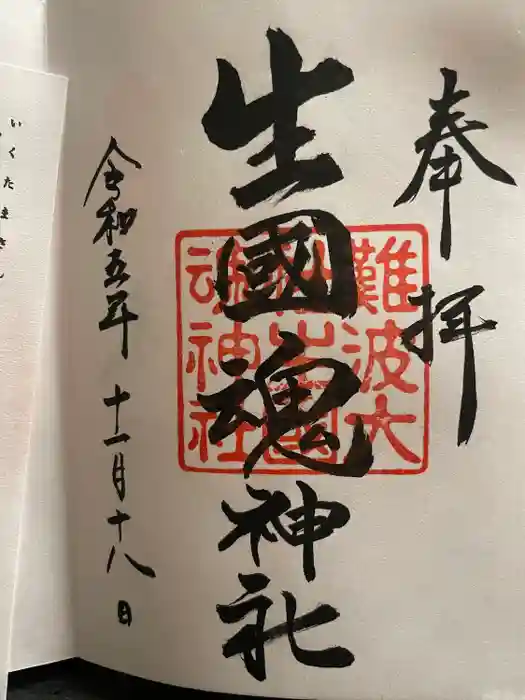 奉拝
生國魂神社
難波大
社生國
魂神社
令和五年 十一月十八日
いくたまさん